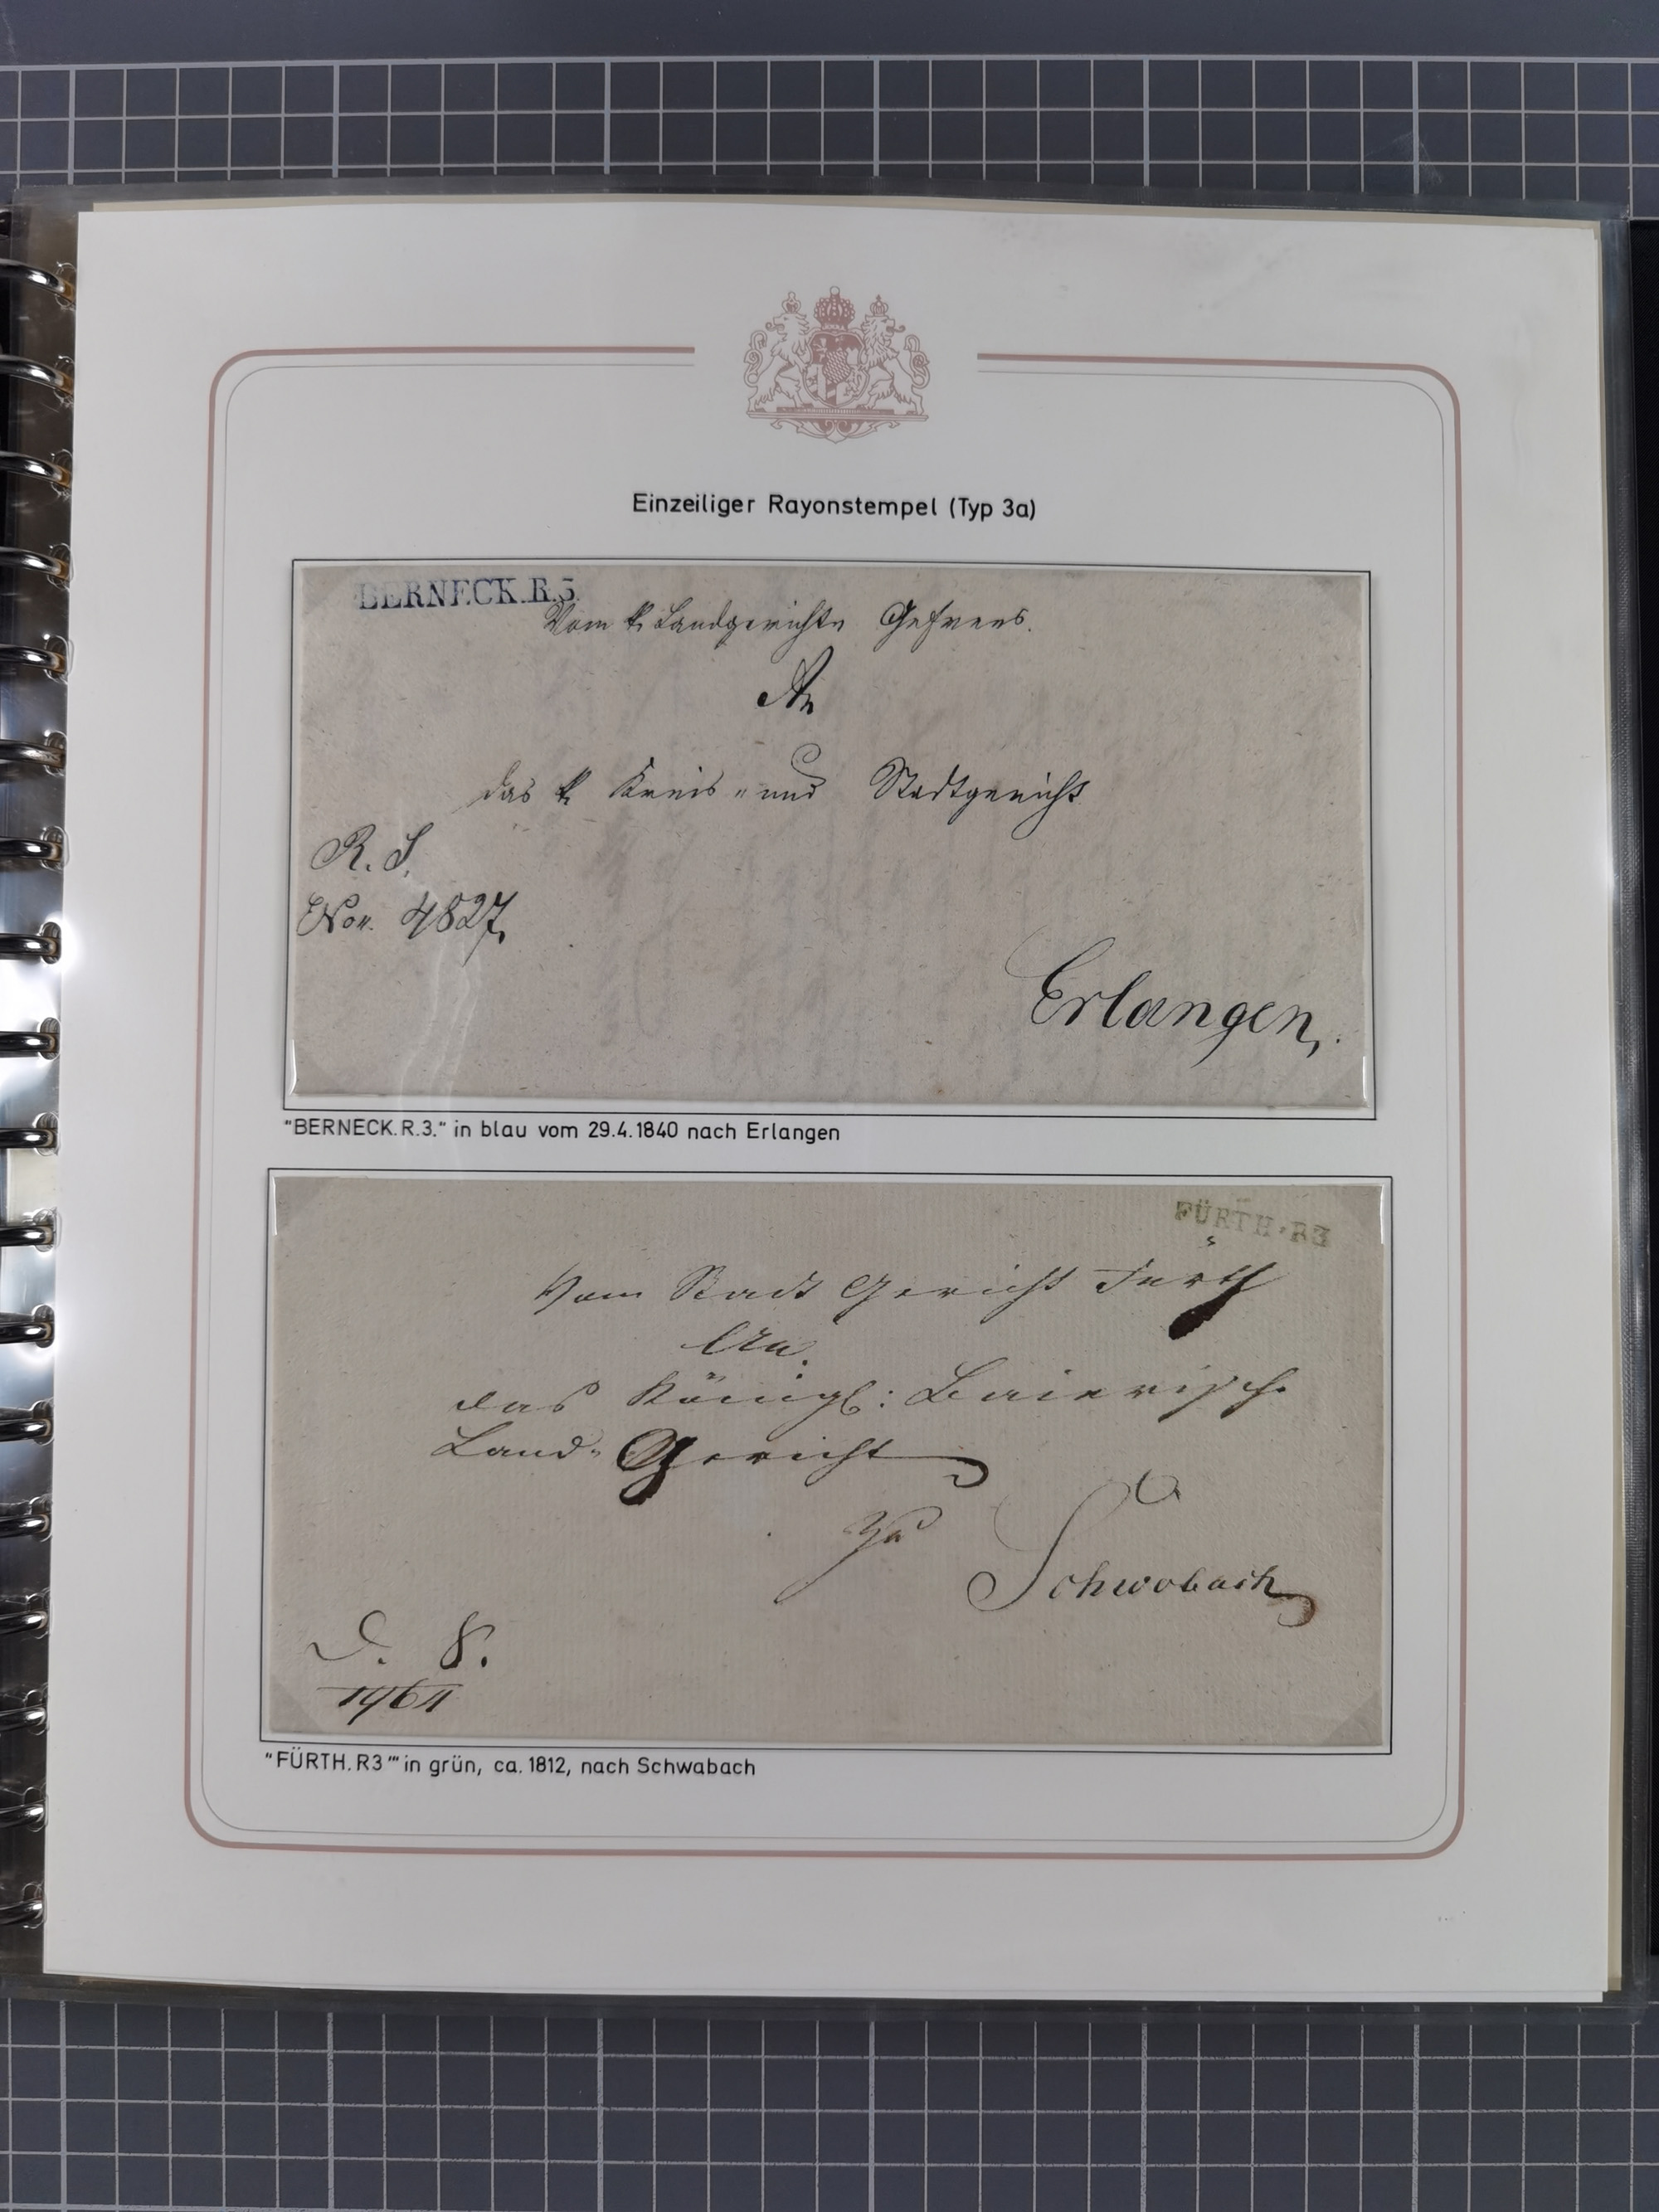 Einzeiliger Rayonstempel (Typ 3a)
BERNECK.R.3.
Vom k. Landgerichte Gefrees.
An
das k. Kreis- und Stadtgericht
R. S.
Nor. 4827.
Erlangen.
"BERNECK.R.3." in blau vom 29.4.1840 nach Erlangen
FÜRTH.R3
Vom Stadt Gericht Fürth
An
das Königl: Baierische
Land-Gericht
zu
Schwabach
D. 8.
1961
"FÜRTH.R3"" in grün, ca. 1812, nach Schwabach